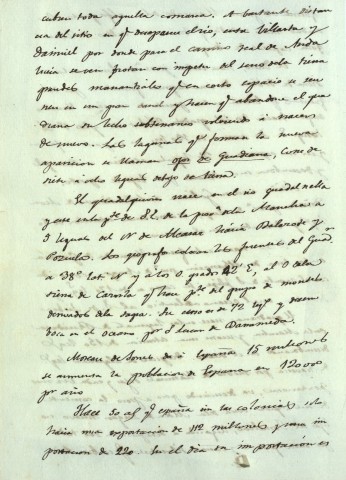 cubren toda aquella comarca. A bastante distan
cia del sitio en q.e desaparece el rio, entre Villarta y
Daimiel por donde pasa el camino real de Anda
lucia se ven brotar con impetu del seno de la tierra
grandes manantiales q.e en corto espacio se reu
nen en un gran canal y hacen q.e abandone el gua
diana su lecho subterraneo volviendo á nacer
de nuevo. Las lagunas q.e forman la nueva
aparicion se llaman ojos de Guadiana, como de
siete á ocho leguas debajo de tierra
El guadalquivir nace en el rio guadalmena
y este en la p.te de S.E. de la prov.a de la Mancha a
3 leguas del N. de Alcaraz hacia y
Los geografos colocan las fuentes del Gua
a 38º lat. N y a los 0 grados 42' E, al O de la
sierra de Cazorla q.e hace p.te del grupo de montes
dominados de la Sagra. Su curso es de 72 leg.s y desem
boca en el oceano por S. Lucar de Barrameda.
Moreau de Jonnes da á España 15 millones
se aumenta la poblacion de España en 120000
por año
Hace 30 añ. q.e españa in las colonias solo
hacia una exportacion de 112 millones y una im
portacion de 220. En el dia su importacion es